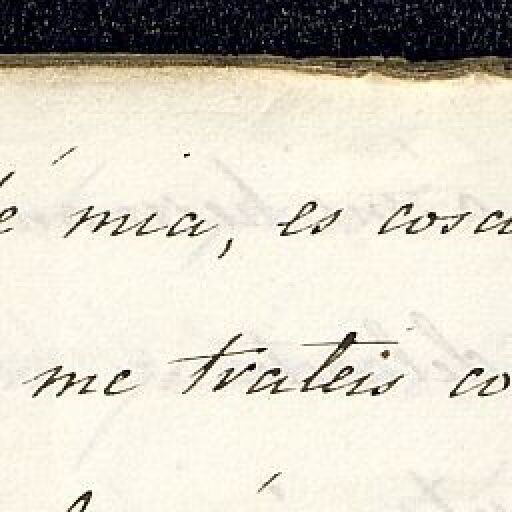 é mia, es cosa
me trateis co